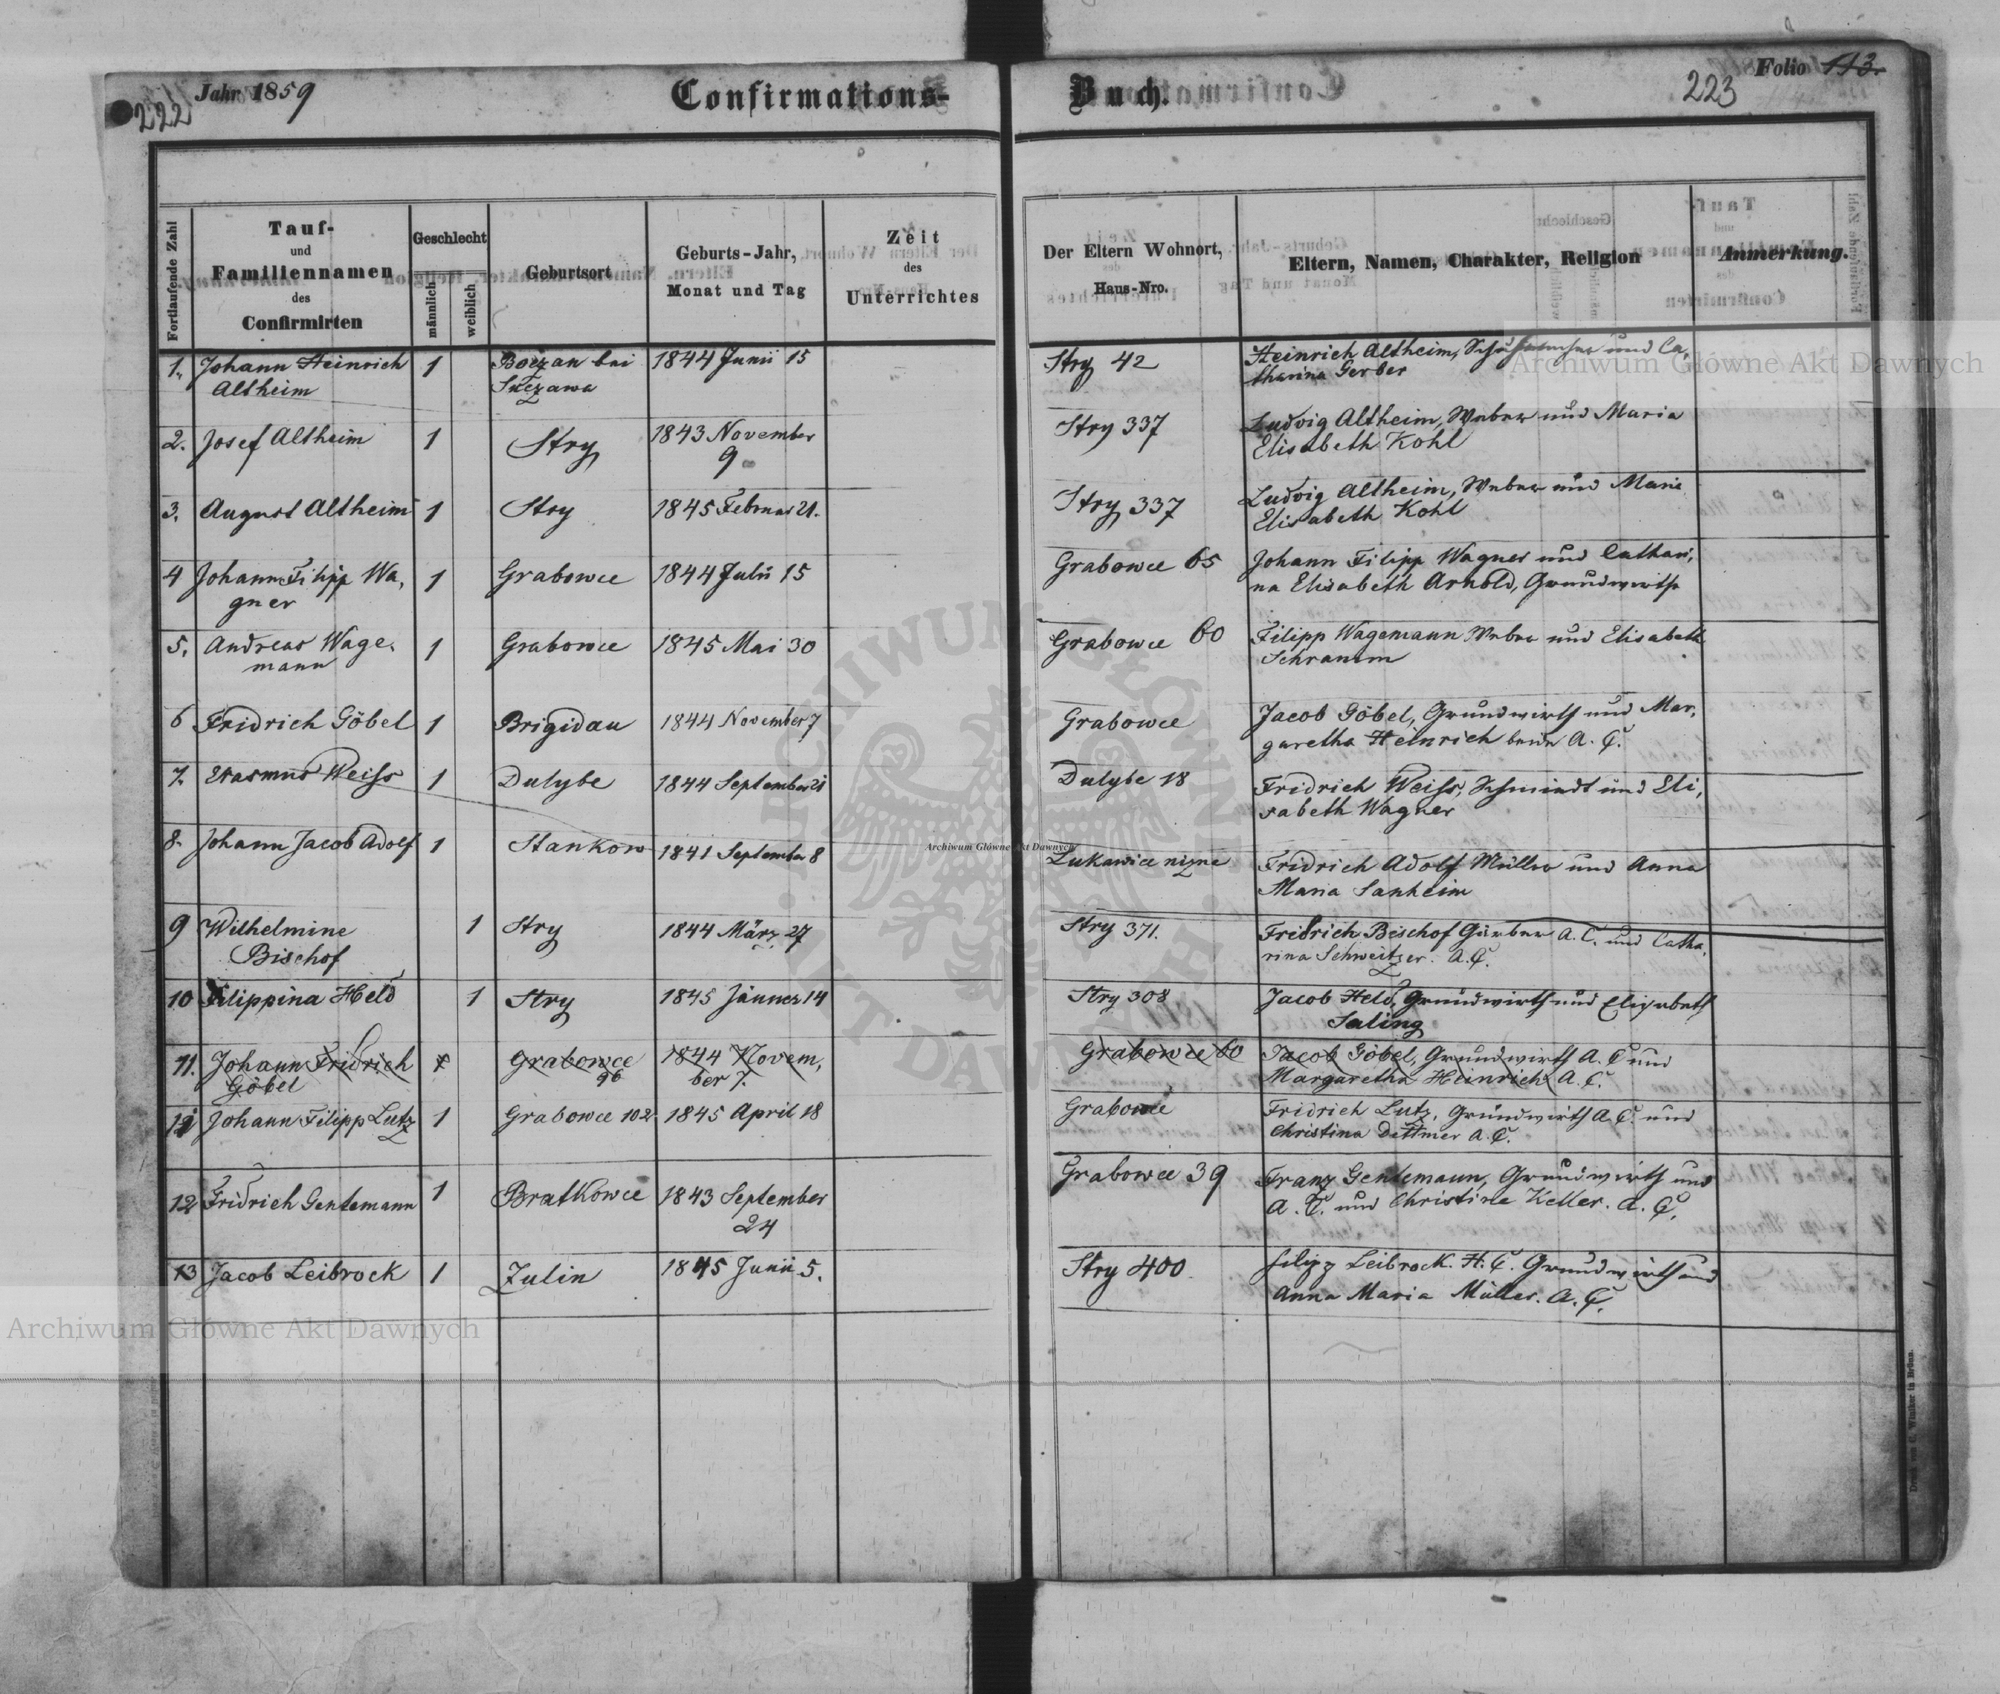 222
Jahr 1859
Confirmations-
Buch.
223
Folio 113.
Fortlaufende Zahl
Tauf-
und
Familiennamen
des
Confirmirten
Geschlecht
männlich
weiblich
Geburtsort
Geburts-Jahr,
Monat und Tag
Zeit
des
Unterrichtes
Der Eltern Wohnort,
Haus-Nro.
Eltern, Namen, Charakter, Religion
Anmerkung.
1. Johann Heinrich 1 bei 1844 Junii 15 Stry 42 Heinrich Altheim, Schuhmacher und Ca,
Altheim Suczawa tharina Gerber
2. Josef Altheim 1 Stry 1843 November Stry 337 Ludvig Altheim, Weber und Maria
9 Elisabeth Kohl
3. August Altheim 1 Stry 1845 Februar 21. Stry 337 Ludvig Altheim, Weber und Marie
Elisabeth Kohl
4 Johann Filipp Wa, 1 Grabowce 1844 Julii 15 Grabowce 65 Johann Filipp Wagner und Cathari,
gner na Elisabeth Arnold, Grundwirth
5. Andreas Wage, 1 Grabowce 1845 Mai 30 Grabowce 60 Filipp Wagemann Weber und Elisabeth
mann Schramm
6 Fridrich Göbel 1 Brigidau 1844 November 7 Grabowce Jacob Göbel, Grundwirth und Mar,
garetha Heinrich beide A. C.
7. Erasmus Weiss 1 Dulybe 1844 September 21 Dulybe 18 Fridrich Weiss, Schmiedt und Eli,
sabeth Wagner
8. Johann Jacob Adolf 1 Stankow 1841 September 8 Lukawice nizne Fridrich Adolf Müller und Anna
Maria Sanheim
9 Wilhelmine 1 Stry 1844 März 27 Stry 371. Fridrich Bischof Gärber A. C. und Catha,
Bischof rina Schweitzer. A. C.
10 Filippina Held 1 Stry 1845 Jänner 14 Stry 308 Jacob Held, Grundwirth und Elisabeth
Saling
11. Johann Fridrich 1 Grabowce 1844 Novem, Grabowce 60 Jacob Göbel, Grundwirth A. C. und
Göbel 96 ber 7. Margaretha Heinrich A. C.
11 Johann Filipp Lutz 1 Grabowce 102 1845 April 18 Grabowce Fridrich Lutz, Grundwirth A. C. und
Christina Dettmer A. C.
12 Fridrich Gentemann 1 Bratkowce 1843 September Grabowce 39 Franz Gentemann, Grundwirth und
24 A. C. und Christine Keller. A. C.
13 Jacob Leibrock 1 Zulin 1845 Junii 5. Stry 400. Filipp Leibrock. H. C. Grundwirth und
Anna Maria Müller. A. C.
Archiwum Główne Akt Dawnych
Archiwum Główne Akt Dawnych
Archiwum Główne Akt Dawnych
ARCHIWUM GŁÓWNE AKT DAWNYCH